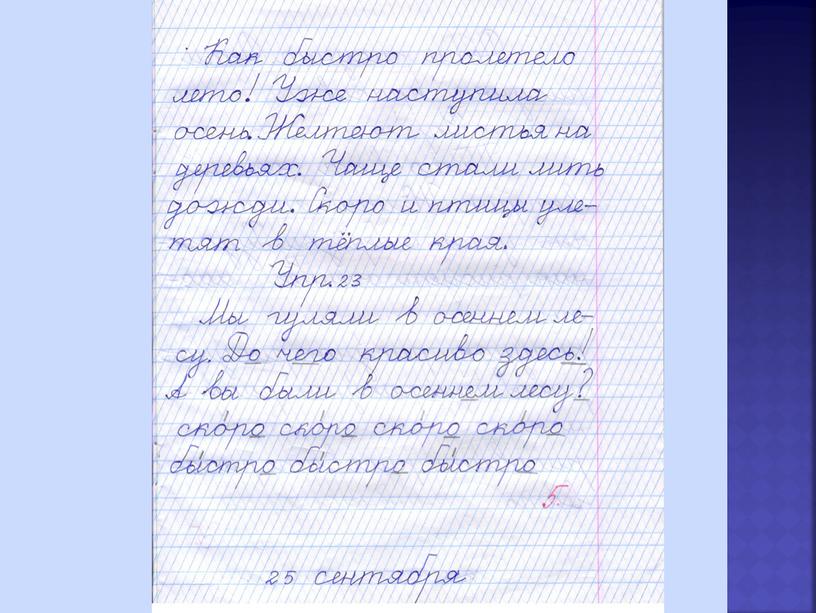 Как быстро пролетело
лето! Уже наступила
осень. Желтеют листья на
деревьях. Чаще стали лить
дожди. Скоро и птицы уле-
тят в тёплые края.
Упр. 23
Мы гуляли в осеннем ле-
су. До чего красиво здесь!
А вы были в осеннем лесу?
ско́ро ско́ро ско́ро ско́ро
бы́стро бы́стро бы́стро
5.
25 сентября